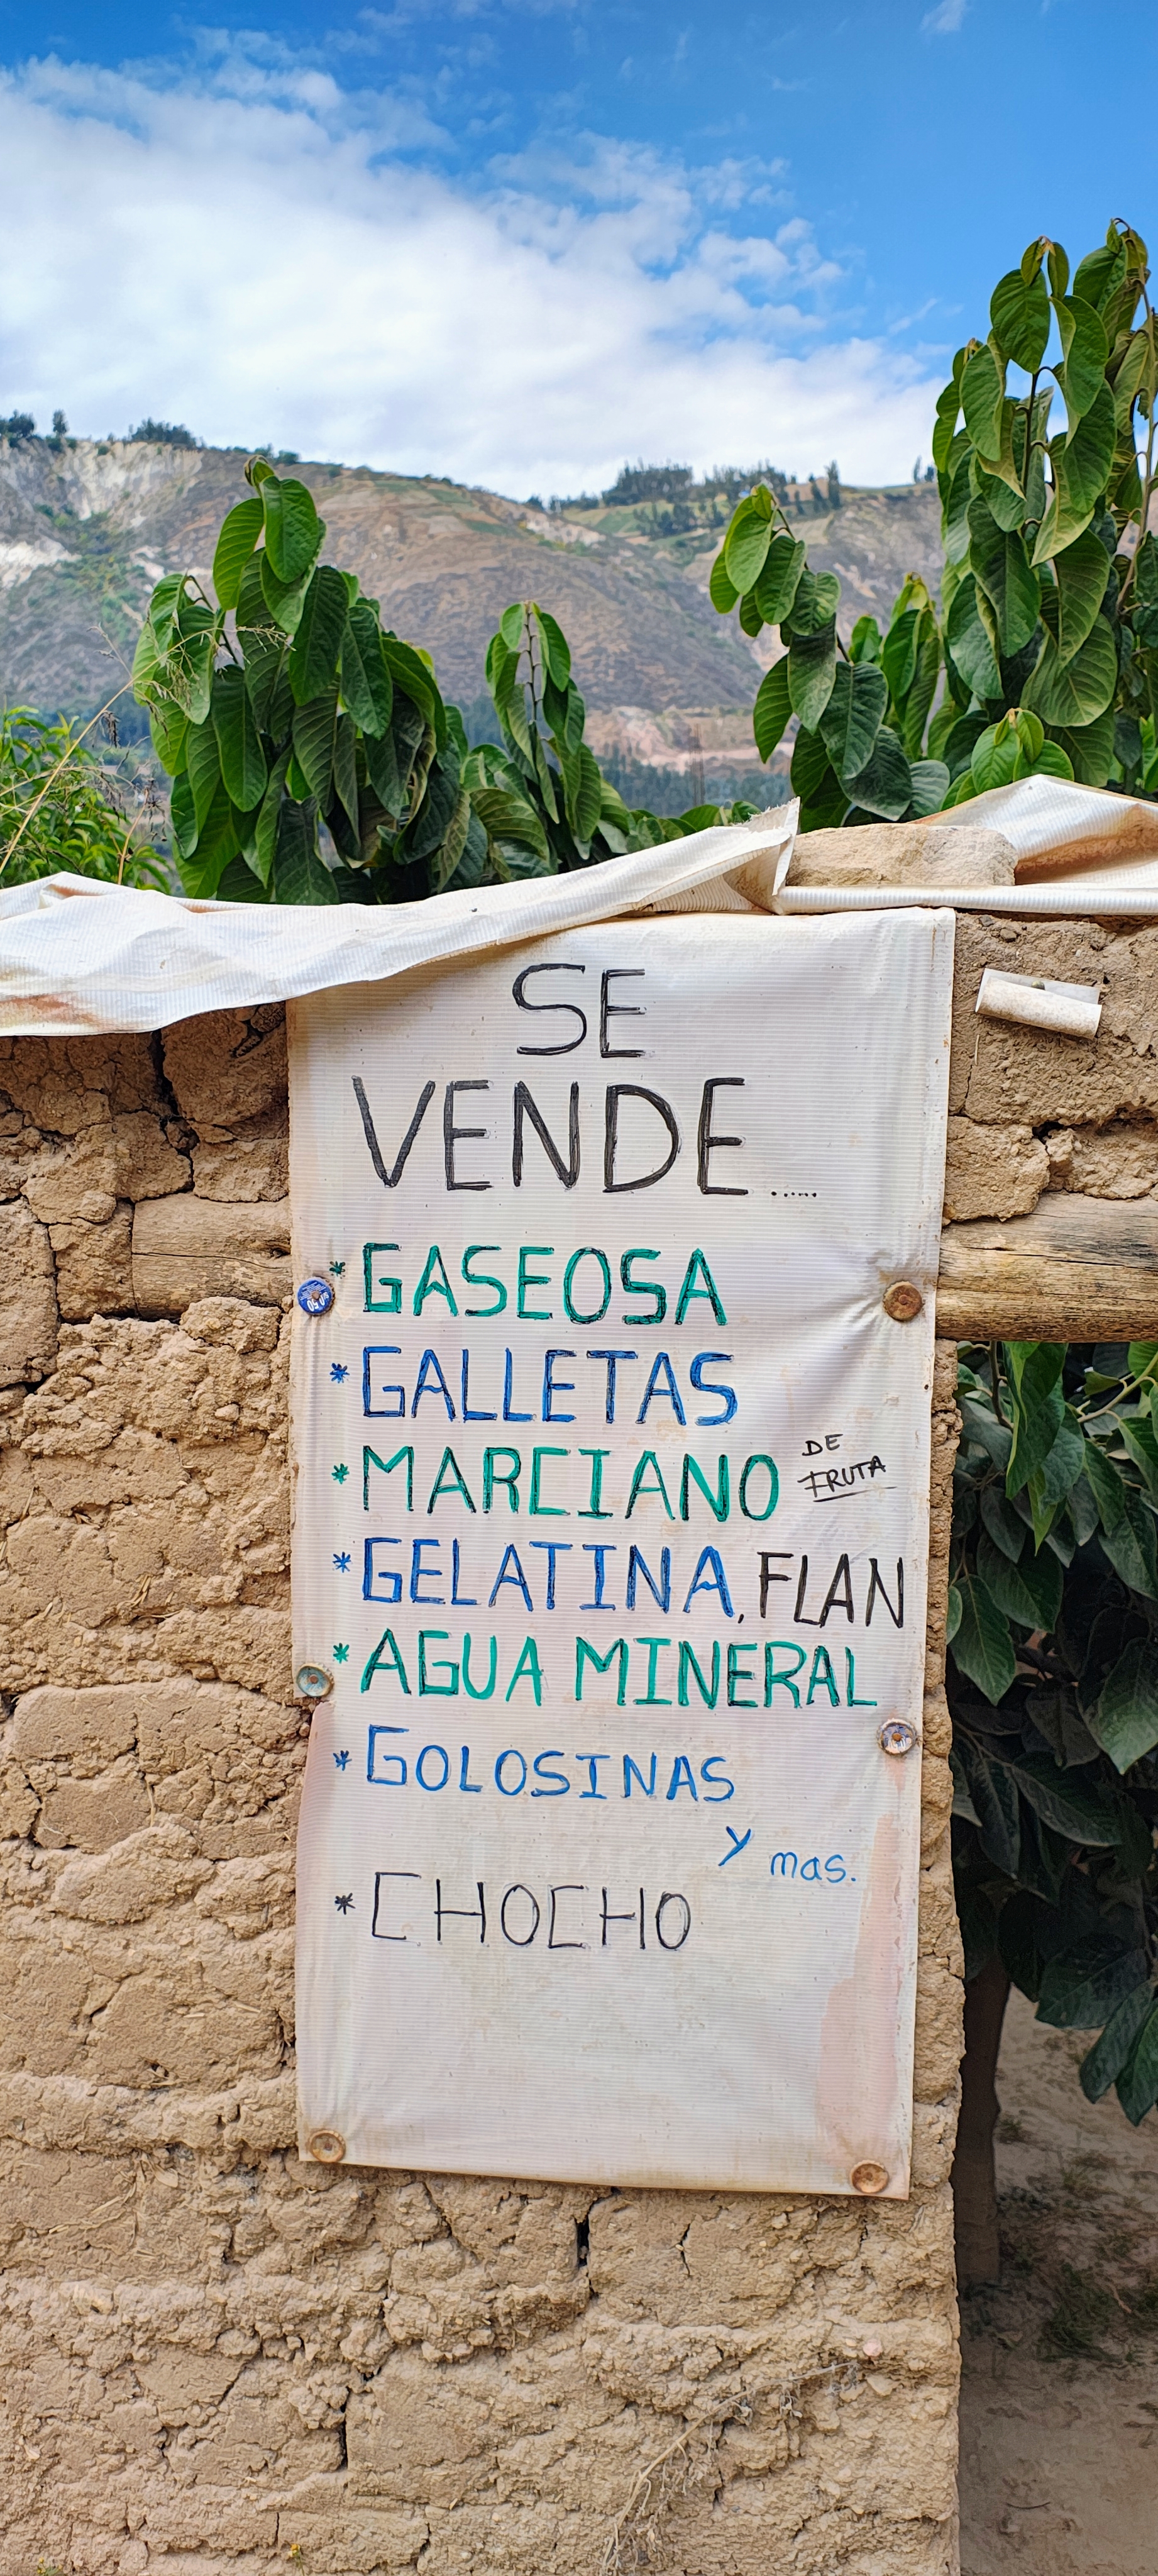 SE
VENDE.....
* GASEOSA
* GALLETAS
* MARCIANO DE FRUTA
* GELATINA, FLAN
* AGUA MINERAL
* GOLOSINAS
y mas.
* CHOCHO